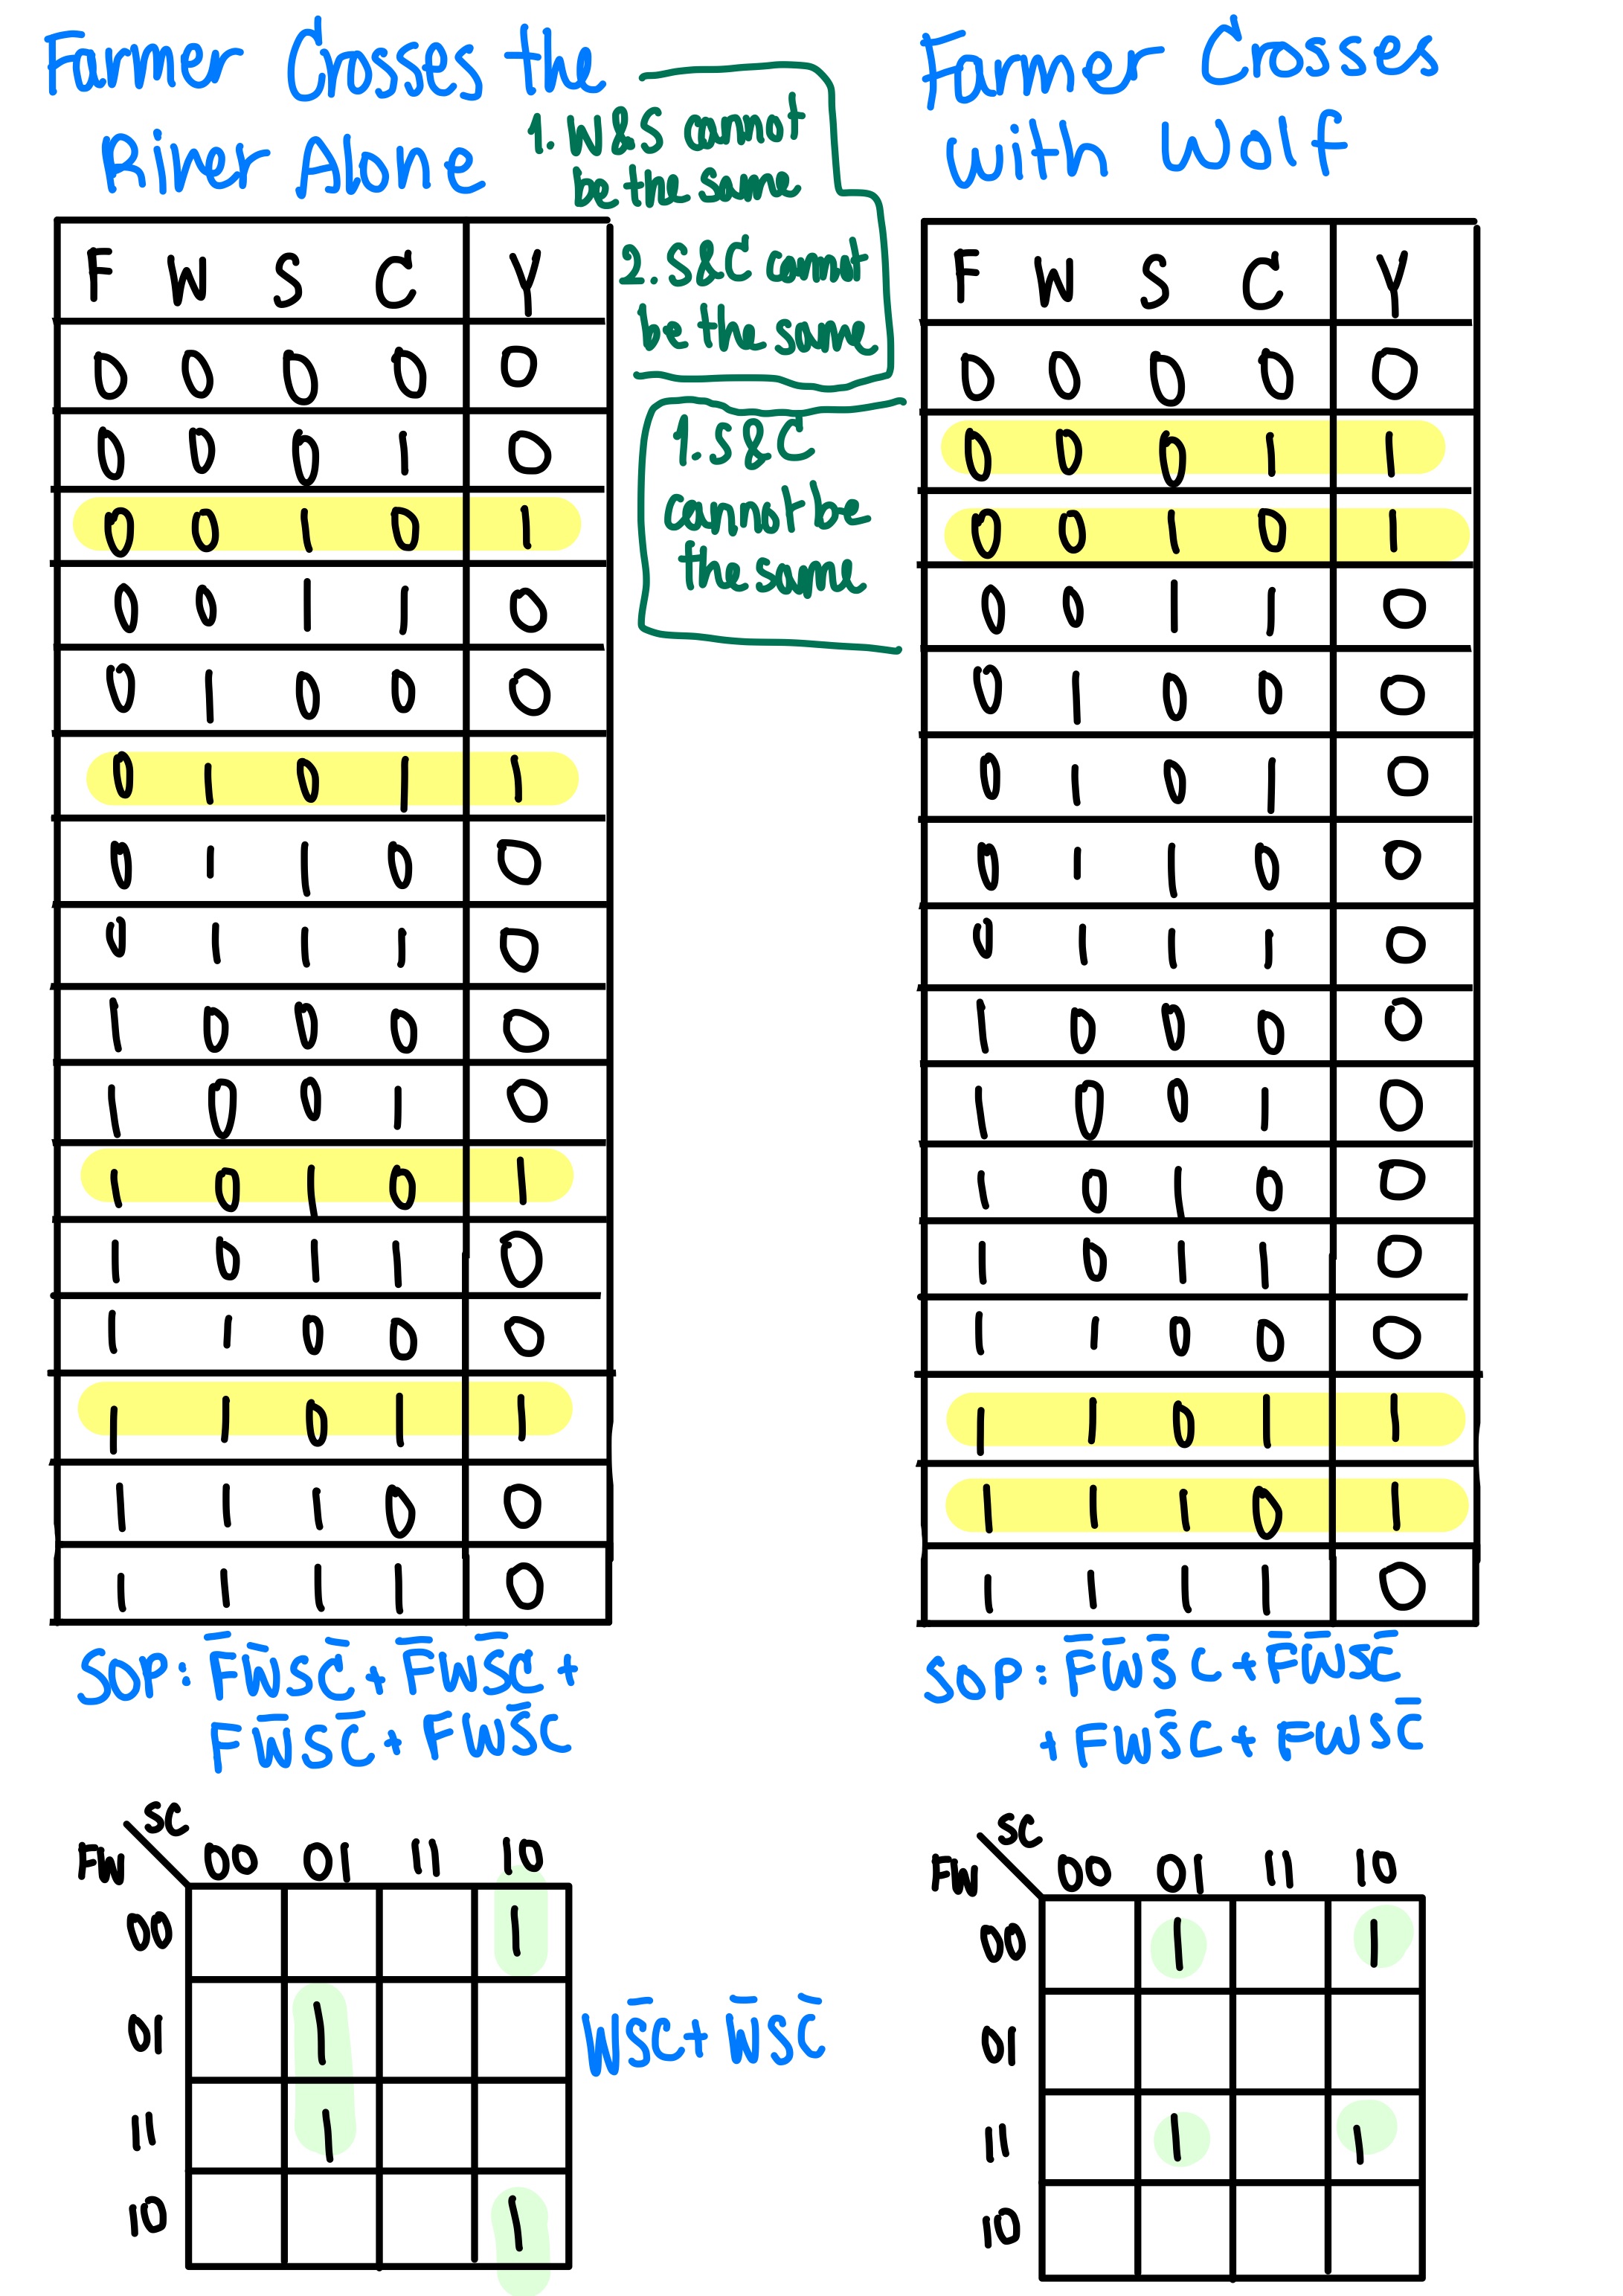 Farmer Crosses the
River Alone
1. W&S cannot
be the same
2. S&C cannot
be the same
1. S&C
cannot be
the same
F W S C Y
0 0 0 0 0
0 0 0 1 0
0 0 1 0 1
0 0 1 1 0
0 1 0 0 0
0 1 0 1 1
0 1 1 0 0
0 1 1 1 0
1 0 0 0 0
1 0 0 1 0
1 0 1 0 1
1 0 1 1 0
1 1 0 0 0
1 1 0 1 1
1 1 1 0 0
1 1 1 1 0
SOP: F̅W̅SC̅ + F̅WS̅C +
FW̅SC̅ + FWS̅C
SC
FW 00 01 11 10
00 1
01 1
11 1
10 1
WS̅C + W̅SC̅
Farmer Crosses
with Wolf
F W S C Y
0 0 0 0 0
0 0 0 1 1
0 0 1 0 1
0 0 1 1 0
0 1 0 0 0
0 1 0 1 0
0 1 1 0 0
0 1 1 1 0
1 0 0 0 0
1 0 0 1 0
1 0 1 0 0
1 0 1 1 0
1 1 0 0 0
1 1 0 1 1
1 1 1 0 1
1 1 1 1 0
SOP: F̅W̅S̅C + F̅W̅SC̅
+ FWS̅C + FWSC̅
SC
FW 00 01 11 10
00 1 1
01
11 1 1
10